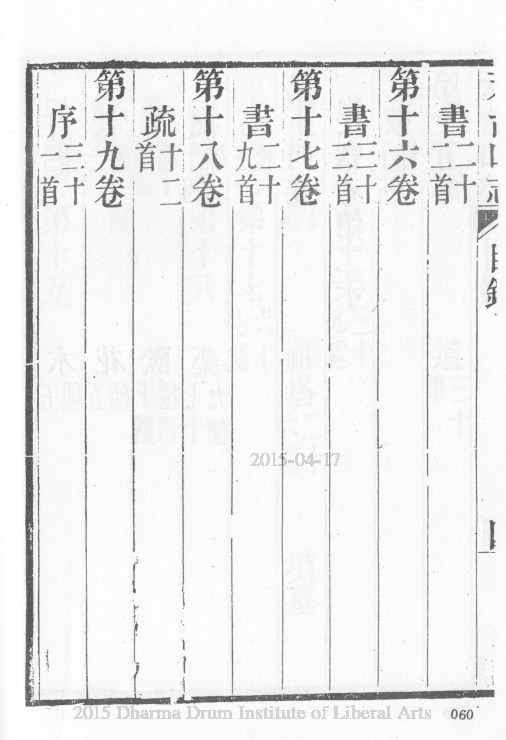 目錄
書二十二首
第十六卷
書三十三首
第十七卷
書二十九首
第十八卷
疏十二首
第十九卷
序三十一首
2015-04-17
2015 Dharma Drum Institute of Liberal Arts
060